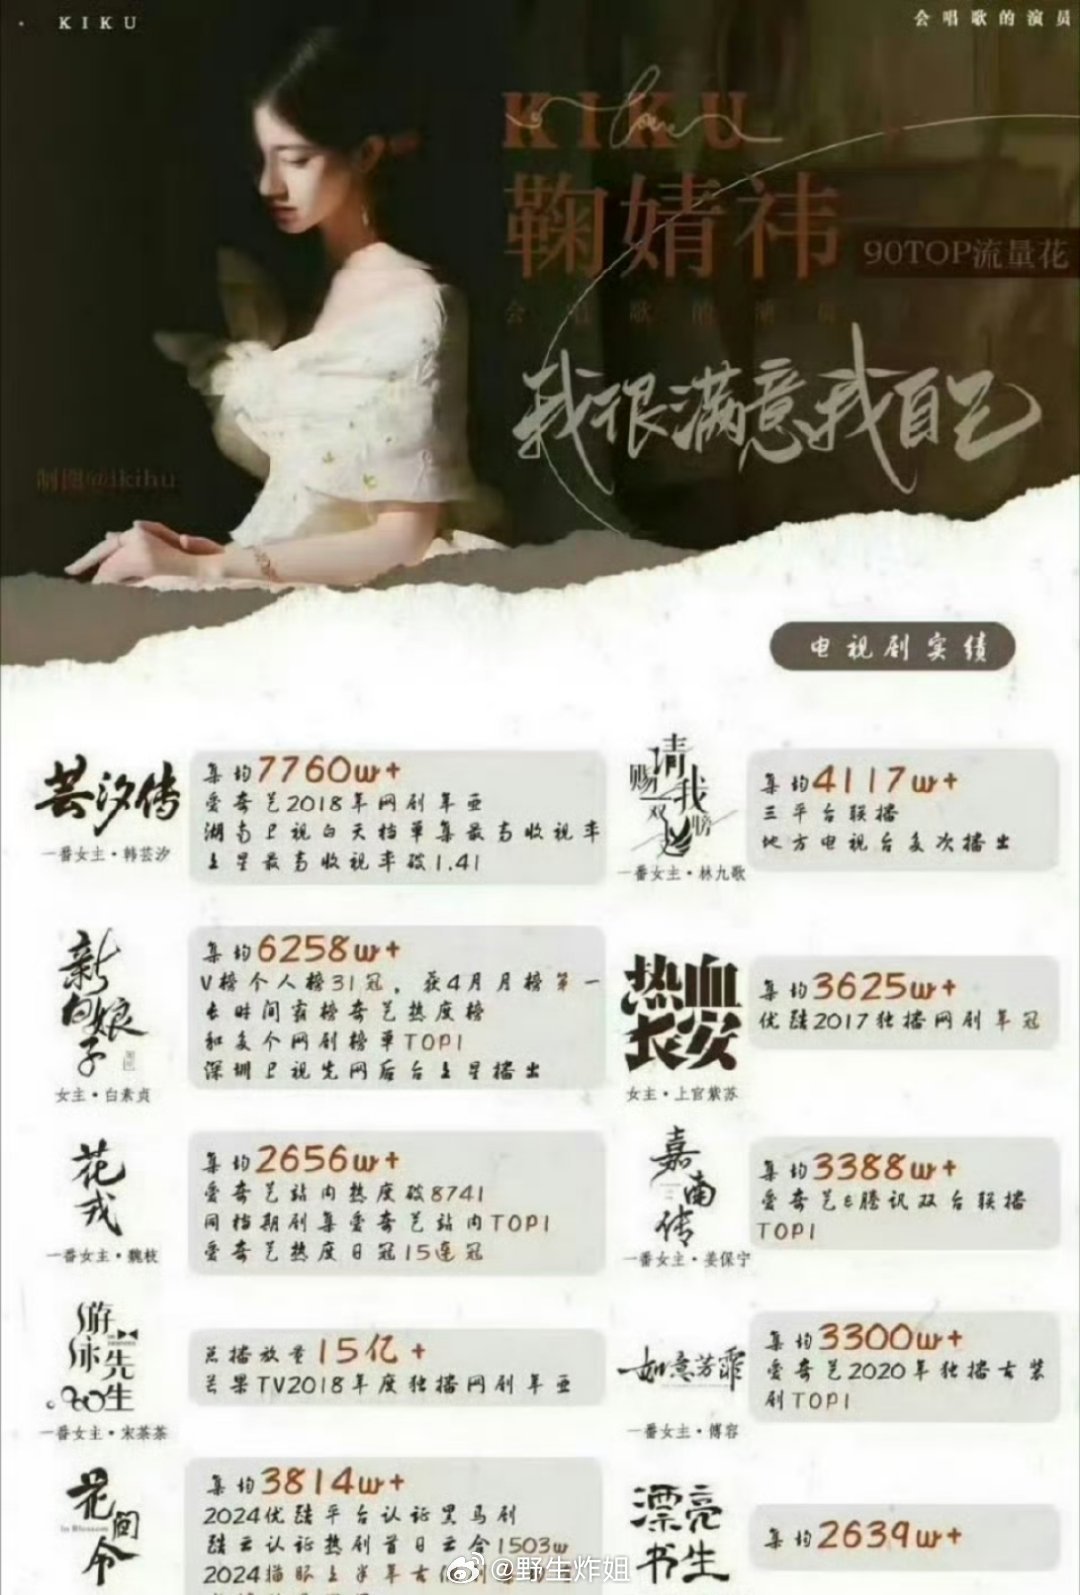 KIKU
会唱歌的演员
KIKU
Love
鞠婧祎
90TOP流量花
会唱歌的演员
我很满意我自己
制图@ikihu
电视剧实绩
芸汐传
一番女主·韩芸汐
集均7760w+
爱奇艺2018年网剧年亚
湖南卫视白天档单集最高收视率
上星最高收视率破1.41
请赐我一双翅膀
一番女主·林九歌
集均4117w+
三平台联播
地方电视台多次播出
新白娘子
女主·白素贞
集均6258w+
V榜个人榜31冠，获4月月榜第一
长时间霸榜奇艺热度榜
和多个网剧榜单TOP1
深圳卫视先网后台上星播出
热血长安
女主·上官紫苏
集均3625w+
优酷2017独播网剧年冠
花戎
一番女主·魏枝
集均2656w+
爱奇艺站内热度破8741
同档期剧集爱奇艺站内TOP1
爱奇艺热度日冠15连冠
嘉南传
一番女主·姜保宁
集均3388w+
爱奇艺&腾讯双台联播
TOP1
游泳先生
一番女主·宋茶茶
总播放量15亿+
芒果TV2018年度独播网剧年亚
如意芳霏
一番女主·傅容
集均3300w+
爱奇艺2020年独播古装
剧TOP1
花间令
In Blossom
集均3814w+
2024优酷平台认证黑马剧
酷云认证热剧首日云合1503w
2024猫眼上半年古
漂亮书生
集均2639w+
@野生炸姐